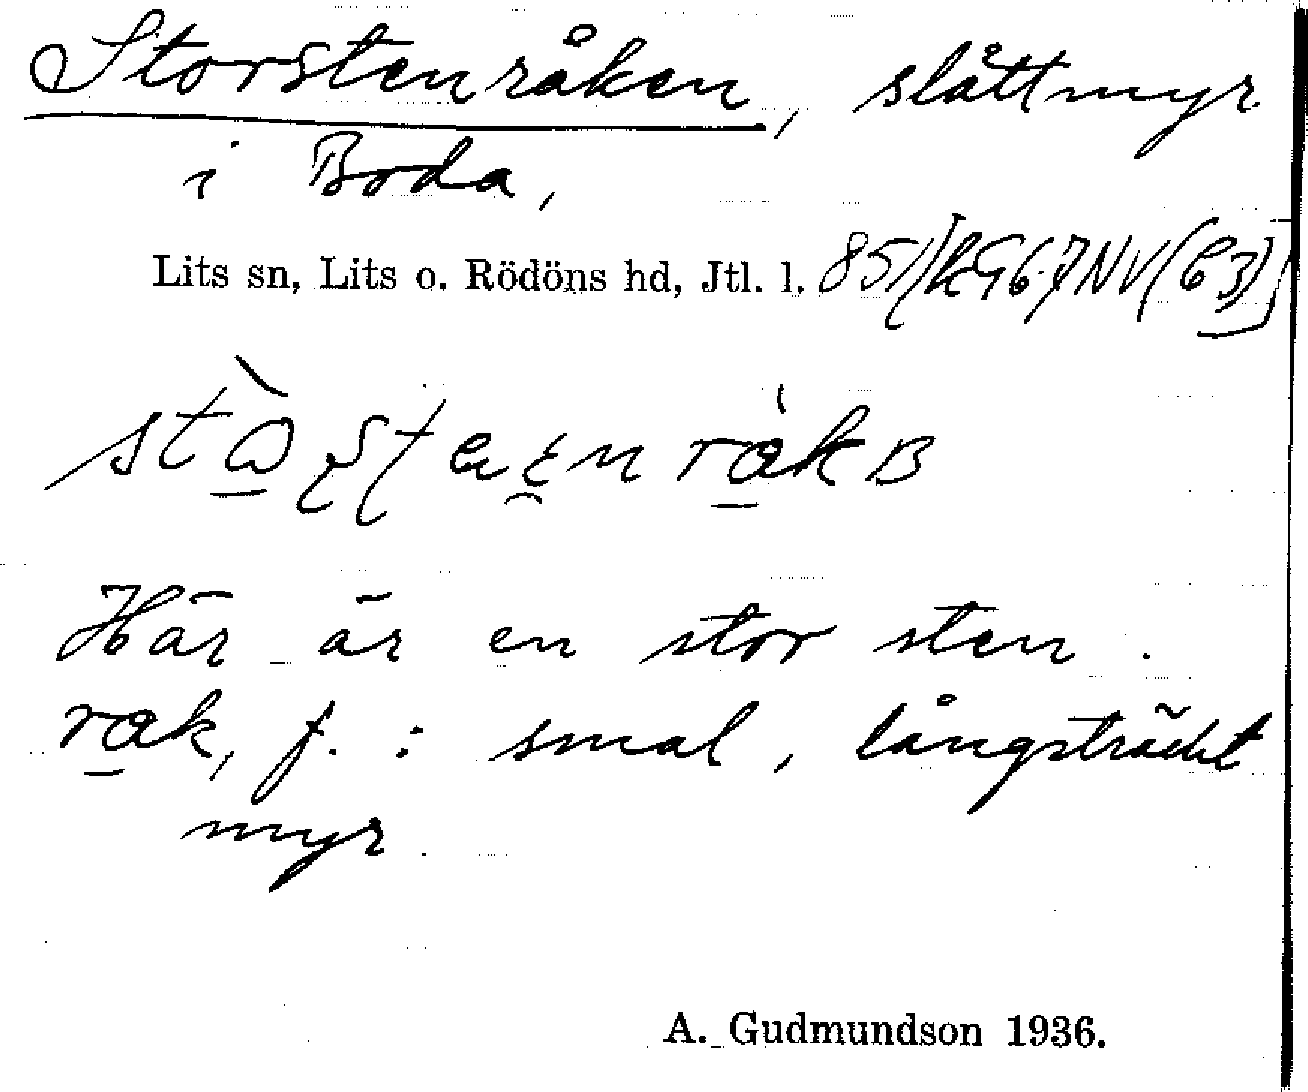 Storstenråken, slåttmyr
i Boda,
Lits sn, Lits o. Rödöns hd, Jtl. l.
Här är en stor sten.
rak, f. : smal, långsträckt
myr.
A. Gudmundson 1936.